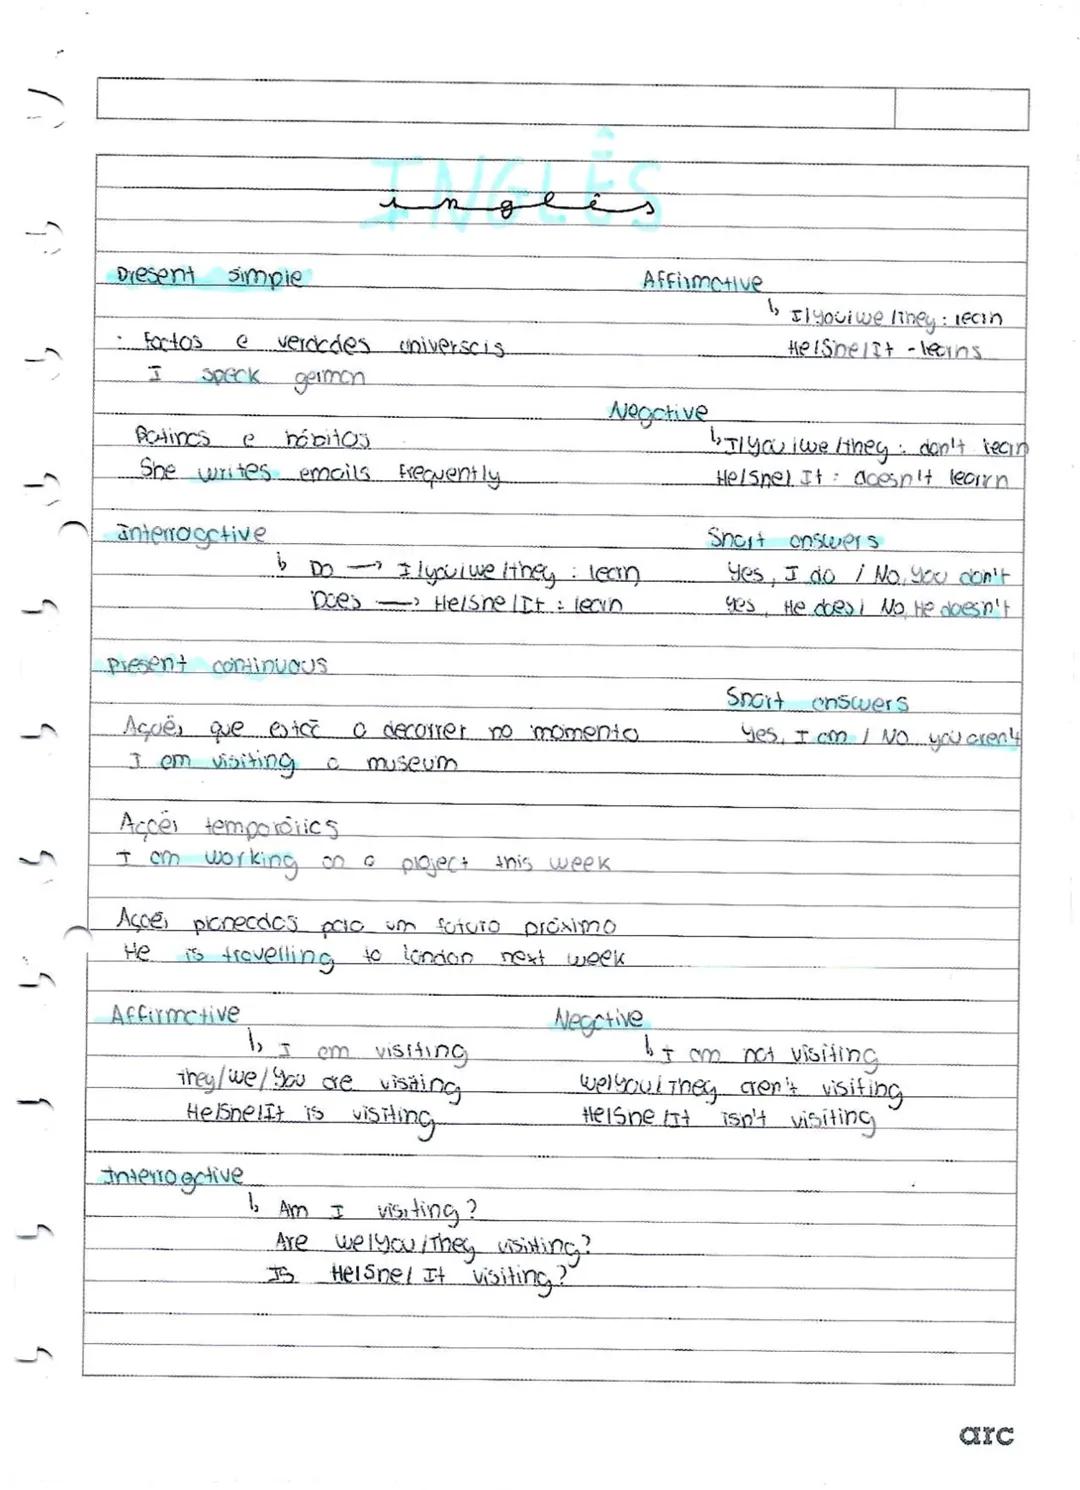 INGLÊS
inglês
Present simple
Affirmative
↳ I/you/we/they: learn
He/She/It - learns
· Factos e verdades universais
I speak german
Negative
↳ I/you/we/they: don't learn
He/She/It: doesn't learn
Rotinas e hábitos
She writes emails frequently
Interrogative
↳ Do → I/you/we/they: learn
Does → He/She/It: learn
Short answers
Yes, I do / No, you don't
Yes, He does / No, He doesn't
Present continuous
Short answers
Yes, I am / No you aren't
Ações que estão a decorrer no momento
I am visiting a museum
Ações temporárias
I am working on a project this week
Ações planeadas para um futuro próximo
He is travelling to london next week
Affirmative
↳ I am visiting
They/We/You are visiting
He/She/It is visiting
Negative
↳ I am not visiting
We/You/They aren't visiting
He/She/It isn't visiting
Interrogative
↳ Am I visiting?
Are we/you/They visiting?
Is He/She/It visiting?
arc